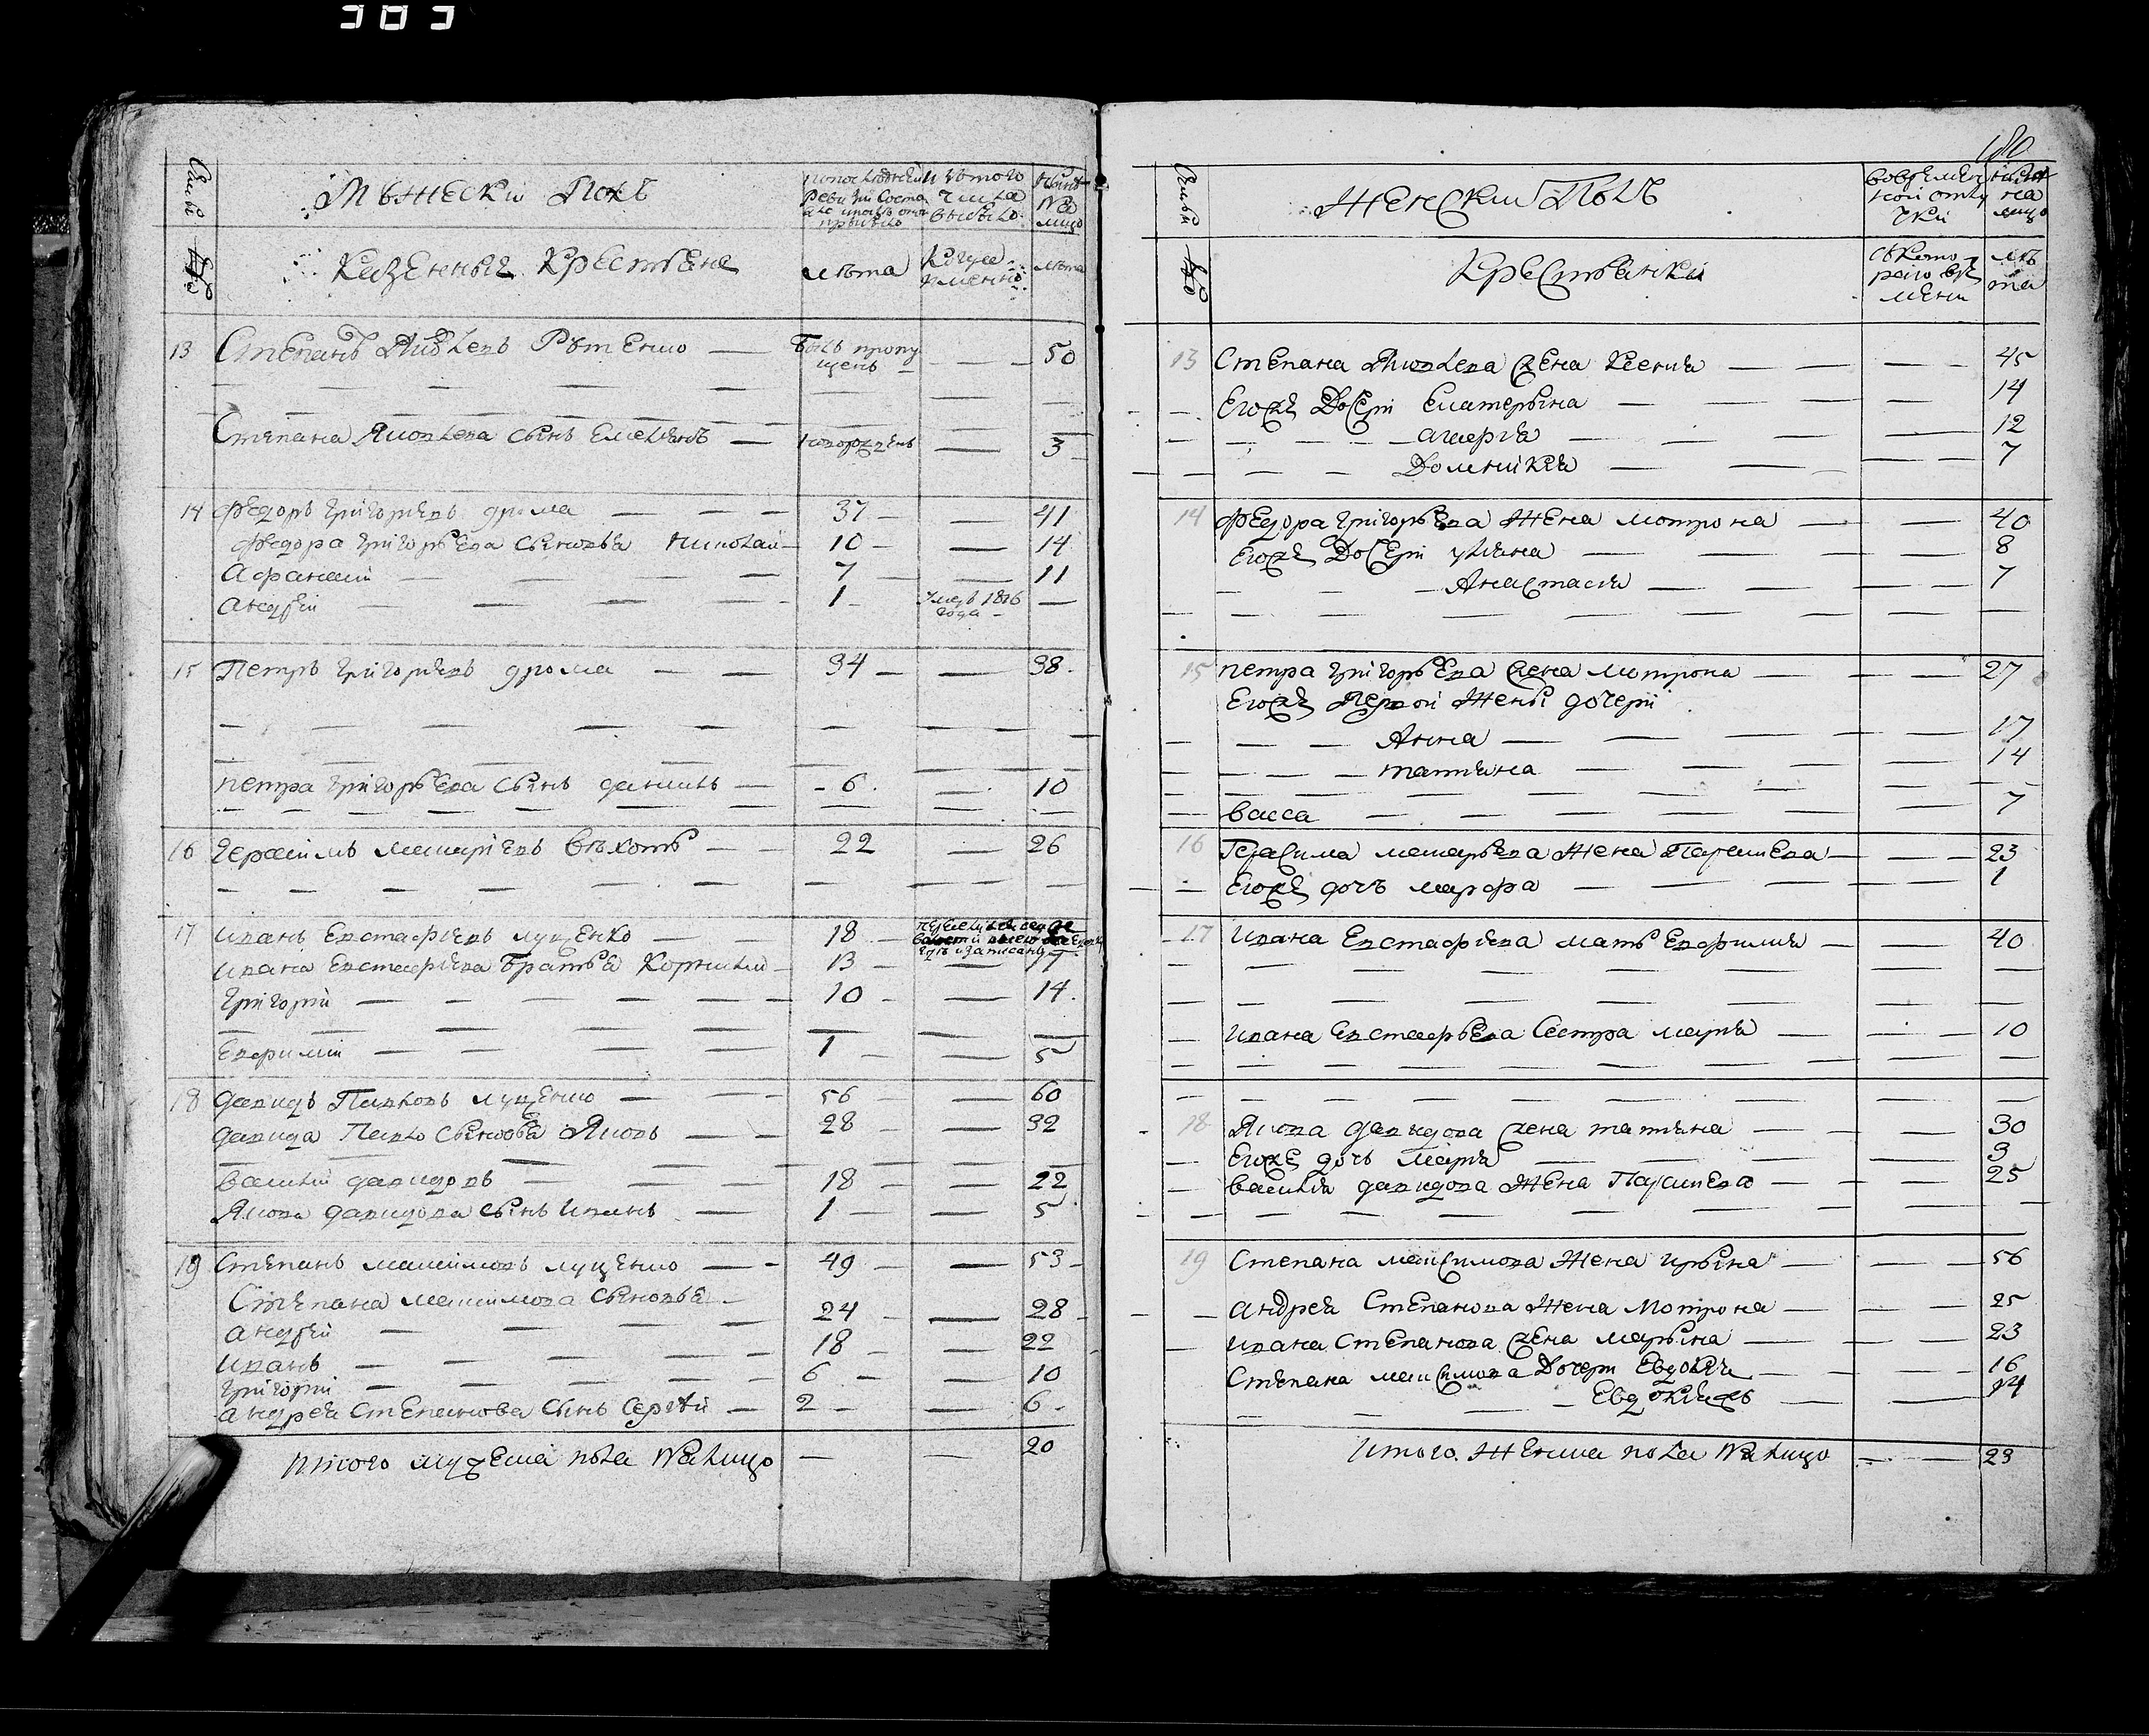 303
Семьи
Мужески Полъ
лета
Казенныя Крестьяне
лѣта
Когда имянно
лѣта
13 Степанъ Яковлевъ Рѣтенко — Былъ пропущенъ — 50
Степана Яковлева сынъ Емельянъ — новорожденъ — 3
14 Федоръ Григорьевъ дрома — 37 — 41
Федора Григорьева сыновья Николай — 10 — 14
Афанасий — 7 — 11
Андрей — 1 умеръ 1816 года —
15 Петръ Григорьевъ дрома — 34 — 38
Петра Григорьева сынъ данилъ — 6 — 10
16 Герасимъ макарьевъ — 22 — 26
17 Иванъ Евстафьевъ луценко — 18
Ивана Евстафьева Братья Корнилий — 13 — 17
Григорий — 10 — 14
Евфимий — 1 — 5
18 давидъ Павловъ луценко — 56 — 60
давида Павло сыновья Яковъ — 28 — 32
василий давидовъ — 18 — 22
Якова давидова сынъ Иванъ — 1 — 5
19 Степанъ максимовъ луценко — 49 — 53
Степана максимова сыновья
андрей — 24 — 28
иванъ — 18 — 22
григорий — 6 — 10
андрея Степанова сынъ Сергѣй — 2 — 6
Итого мужеска пола на лицо — — 20
180
Семьи
Женский Полъ
во временной отлучки
на лицо
Крестьянки
съ котораго времени
лѣта
13 Степана Яковлева жена Ксения — — 45
Егоже Дочери Екатерина — — 14
— — 12
Домникия — — 7
14 Федора григорьева Жена мотрона — — 40
Егоже Дочери улияна — — 8
Анастасия — — 7
15 петра григорьева жена мотрона — — 27
Егоже Первой Жены дочери
Анна — — 17
татияна — — 14
васса — — 7
16 Герасима макарьева Жена Параскева — — 23
Егоже дочь марфа — — 1
17 Ивана Евстафиева мать Евфимия — — 40
Ивана Евстафьева Сестра мария — — 10
18 Якова давидова жена татияна — — 30
Егоже дочь мария — — 3
василия давидова Жена Параскева — — 25
19 Степана максимова Жена ирына — — 56
андрея Степанова Жена мотрона — — 25
ивана Степанова жена марьина — — 23
Степана максимова Дочери Евдокия — — 16
— 14
Итого Женска пола на лицо — — 23